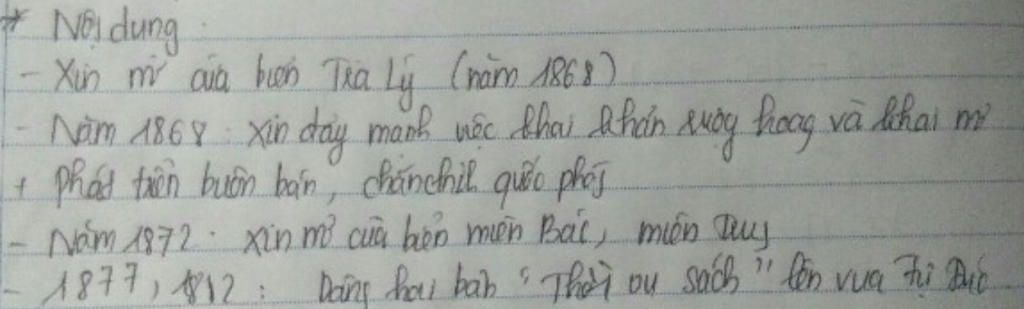 * Nội dung
- Xin mở cửa biển Trà Lý (năm 1868)
- Năm 1868: xin đẩy mạnh việc khai khẩn ruộng hoag và khai mỏ
+ Phát triển buôn bán, chấn chỉh quốc phòg
- Năm 1872: xin mở cửa biển miền Bắc, miền Trug
- 1877, 1812: Dâng hai bản "Thời vụ sách" lên vua Tự Đức